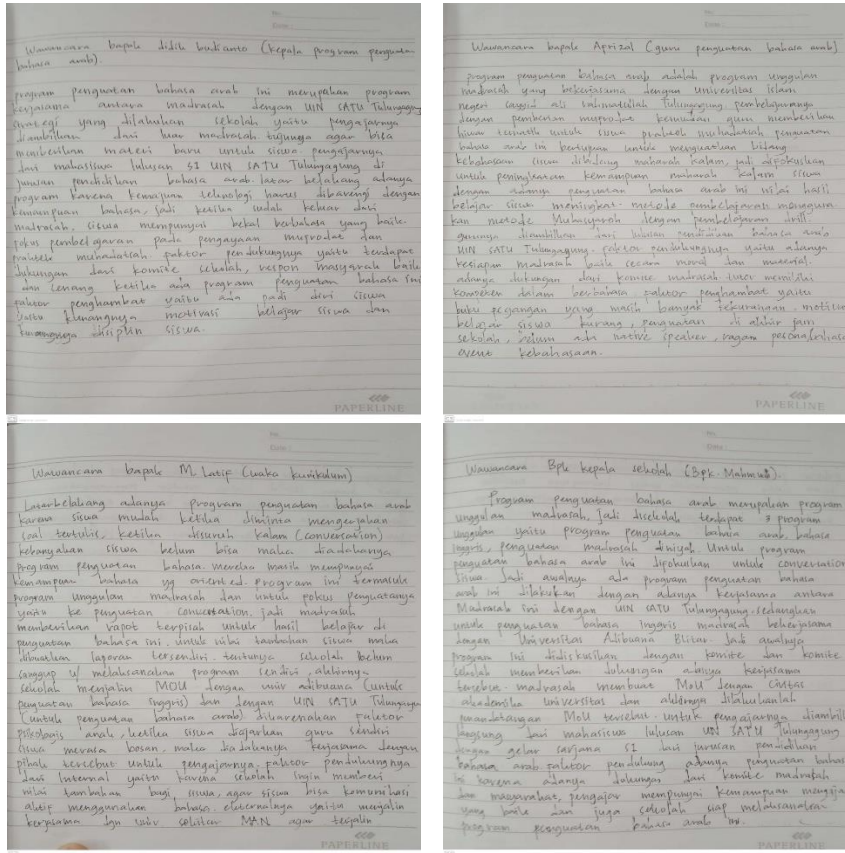 Wawancara bapak didik budianto (kepala program penguatan
bahasa arab).
program penguatan bahasa arab ini merupakan program
kerjasama antara madrasah dengan UIN SATU Tulungagung
strategi yang dilakukan sekolah yaitu pengajarnya
diambilkan dari luar madrasah tujunya agar bisa
memberikan materi baru untuk siswa. pengajarnya
dari mahasiswa lulusan S1 UIN SATU Tulungagung di
jurusan pendidikan bahasa arab. latar belakang adanya
program karena kemajuan teknologi harus dibarengi dengan
kemampuan bahasa, jadi ketika sudah keluar dari
madrasah, siswa mempunyai bekal berbahasa yang baik.
fokus pembelajaran pada pengayaan mufrodat dan
praktek muhadatsah. faktor pendukungnya yaitu terdapat
dukungan dari komite sekolah, respon masyarakat baik
dan senang ketika ada program penguatan bahasa ini
faktor penghambat yaitu ada pada diri siswa
yaitu kurangnya motivasi belajar siswa dan
kurangnya disiplin siswa.
PAPERLINE
Wawancara bapak Aprizal (guru penguatan bahasa arab)
program penguatan bahasa arab adalah program unggulan
madrasah yang bekerjasama dengan universitas Islam
negeri sayyid ali rahmatullah Tulungagung pembelajarannya
dengan pemberian mufrodat kemudian guru memberikan
untuk siswa praktek muhadatsah penguatan
bahasa arab ini bertujuan untuk menguatkan bidang
kebahasaan siswa dibidang maharah kalam, jadi difokuskan
untuk peningkatan kemampuan maharah kalam siswa
dengan adanya penguatan bahasa arab ini nilai hasil
belajar siswa meningkat. metode pembelajaran mengguna
kan metode Mubasyaroh dengan pembelajaran drill
gurunya diambilkan dari lulusan pendidikan bahasa arab
UIN SATU Tulungagung. faktor pendukungnya yaitu adanya
kesiapan madrasah baik secara moral dan material.
adanya dukungan dari komite madrasah tutor memiliki
kompeten dalam berbahasa faktor penghambat yaitu
buku pegangan yang masih banyak kekurangan. motivasi
belajar siswa kurang, penguatan di akhir jam
sekolah, belum ada native speaker,
event kebahasaan.
PAPERLINE
Wawancara bapak M. Latif (waka kurikulum)
Latarbelakang adanya program penguatan bahasa arab
karena siswa mudah ketika diminta mengerjakan
soal tertulis, ketika disuruh kalam (conversation)
kebanyakan siswa belum bisa maka diadakannya
program penguatan bahasa. mereka masih mempunyai
kemampuan bahasa yg oriented. program ini termasuk
program unggulan madrasah dan untuk fokus penguatanya
yaitu ke penguatan convertation. jadi madrasah
memberikan rapot terpisah untuk hasil belajar di
penguatan bahasa ini, untuk nilai tambahan siswa maka
dibuatkan laporan tersendiri. tentunya sekolah belum
sanggup u/ melaksanakan program sendiri, akhirnya
sekolah menjalin MOU dengan univ adibuana (untuk
penguatan bahasa inggris) dan dengan UIN SATU Tulungagung
(untuk penguatan bahasa arab) dikarenakan faktor
psikologis anak, ketika siswa diajarkan guru sendiri
siswa merasa bosan, maka diadakanya kerjasama dengan
pihak tersebut untuk pengajarnya. faktor pendukungnya
dari Internal yaitu karena sekolah ingin memberi
nilai tambahan bagi siswa, agar siswa bisa komunikasi
aktif menggunakan bahasa. eksternalnya yaitu menjalin
kerjasama dgn univ sekitar MAN agar terjalin
PAPERLINE
Wawancara Bpk kepala sekolah (Bpk. Mahmud).
Program penguatan bahasa arab merupakan program
unggulan madrasah. Jadi disekolah terdapat 3 program
unggulan yaitu program penguatan bahasa arab, bahasa
inggris, penguatan madrasah diniyah. Untuk program
penguatan bahasa arab ini difokuskan untuk convertation
siswa. Jadi awalnya ada program penguatan bahasa
arab ini dilakukan dengan adanya kerjasama antara
Madrasah ini dengan UIN SATU Tulungagung. sedangkan
untuk penguatan bahasa inggris madrasah bekerjasama
dengan Universitas Adibuana Blitar. Jadi awalnya
program ini didiskusikan dengan komite dan komite
sekolah memberikan dukungan adanya kerjasama
tersebut. madrasah membuat MoU dengan civitas
akademika universitas dan akhirnya dilakukanlah
penandatangan MoU tersebut. untuk pengajarnya diambil
langsung dari mahasiswa lulusan UIN SATU Tulungagung
dengan gelar sarjana S1 dari jurusan pendidikan
Bahasa arab. faktor pendukung adanya penguatan bahasa
ini karena adanya dukungan dari komite madrasah
dan masyarakat, pengajar mempunyai kemampuan mengajar
yang baik dan juga sekolah siap melaksanakan
program penguatan bahasa arab ini.
PAPERLINE